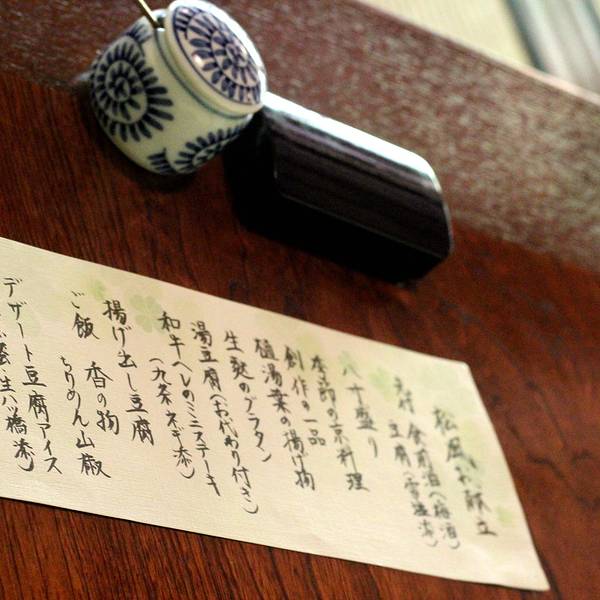 松風お献立
食前酒(梅酒)
先付 豆腐(雪塩添)
八寸盛り
季節の京料理
創作の一品
湯葉の揚げ物
生麩のグラタン
湯豆腐(お代わり付き)
和牛ヘレのミニステーキ
(九条ネギ添)
揚げ出し豆腐
ご飯 香の物
ちりめん山椒
デザート豆腐アイス
生八ツ橋添)